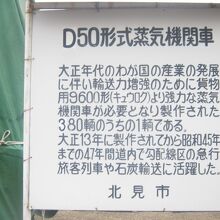 D50形式蒸気機関車
大正年代のわが国の産業の発展
に伴い輸送力増強のために貨物
用9600形(キュウロク)より強力な蒸気
機関車が必要となり製造された
380輌のうちの1輌である。
大正13年に製作されてから昭和45年
までの47年間道内で勾配線区の急行
旅客列車や石炭輸送に活躍した。
北見市